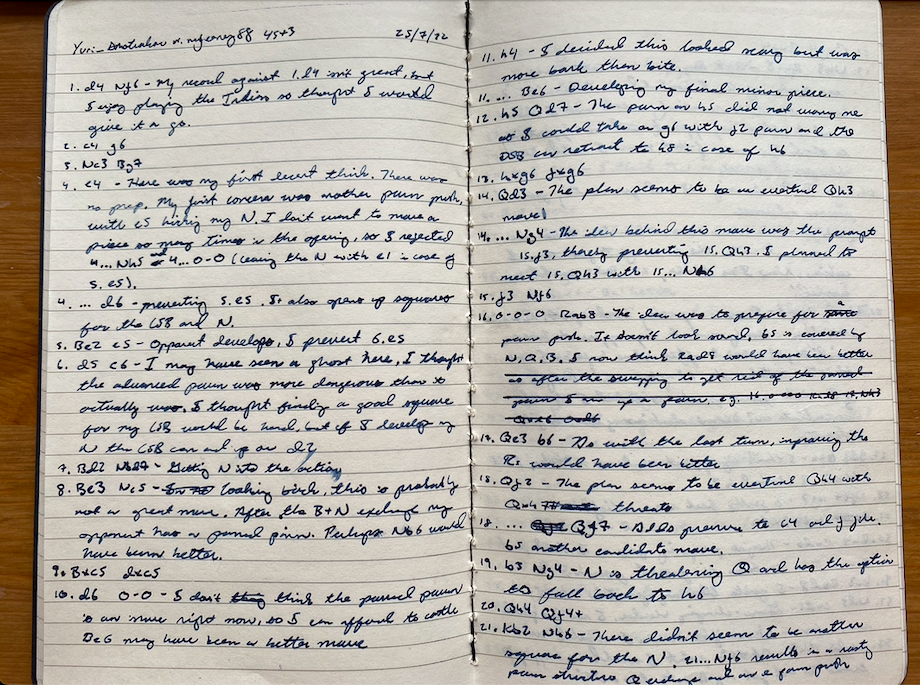 Yuri_ v. 45+3 25/7/22
1. d4 Nf6 - My record against 1.d4 isn't great, but
I enjoy playing the Indian so thought I would
give it a go.
2. c4 g6
3. Nc3 Bg7
4. e4 - Here was my first decent think. There was
no prep. My first concern was another pawn push,
with e5 hitting my N. I don't want to move a
piece so many times in the opening, so I rejected
4...Nh5 4...0-0 (leaving the N with e1 in case of
5. e5).
4. ... d6 - preventing 5.e5. It also opens up squares
for the LSB and N.
5. Be2 e5 - Opponent develops, I prevent 6.e5
6. d5 c6 - I may have seen a ghost here, I thought
the advanced pawn was more dangerous than it
actually was, I thought finding a good square
for my LSB would be hard, but if I develop my
N the LSB can end up on d7
7. Bd2 Nbd7 - Getting N into the action
8. Be3 Nc5 - looking back, this is probably
not a great move. After the B+N exchange my
opponent has a passed pawn. Perhaps Nb6 would
have been better.
9. Bxc5 dxc5
10. d6 0-0 - I don't think the passed pawn
is an issue right now, so I can afford to castle
Be6 may have been a better move
11. h4 - I decided this looked scary but was
more bark than bite.
11. ... Be6 - Developing my final minor piece.
12. h5 Qd7 - The pawn on h5 did not worry me
as I could take on g6 with f7 pawn and the
DSB can retreat to h8 in case of h6
13. hxg6 fxg6
14. Qd3 - The plan seems to be an eventual Qh3
move!
14. ... Ng4 - The idea behind this move was the prompt
15.f3, thereby preventing 15.Qh3. I planned to
meet 15.Qh3 with 15... Nh6
15. f3 Nf6
16. 0-0-0 Rab8 - The idea was to prepare for a
pawn push. It doesn't look sound, b5 is covered by
N, Q, B. I now think Rad8 would have been better
as after the swapping to get rid of the passed
pawn I am up a pawn, e.g. 16.0-0-0 Rad8 17.Nh3
17. Qe3 b6 - As with the last turn, improving the
Rs would have been better
18. Qf2 - The plan seems to be eventual Qh4 with
threats
18. ... Qf7 - Adds pressure to c4 and f file.
b5 another candidate move.
19. b3 Ng4 - N is threatening Q and has the option
to fall back to h6
20. Qh4 Qf4+
21. Kb2 Nh6 - There didn't seem to be another
square for the N. 21...Nf6 results in a nasty
pawn structure Q exchange and an e pawn push